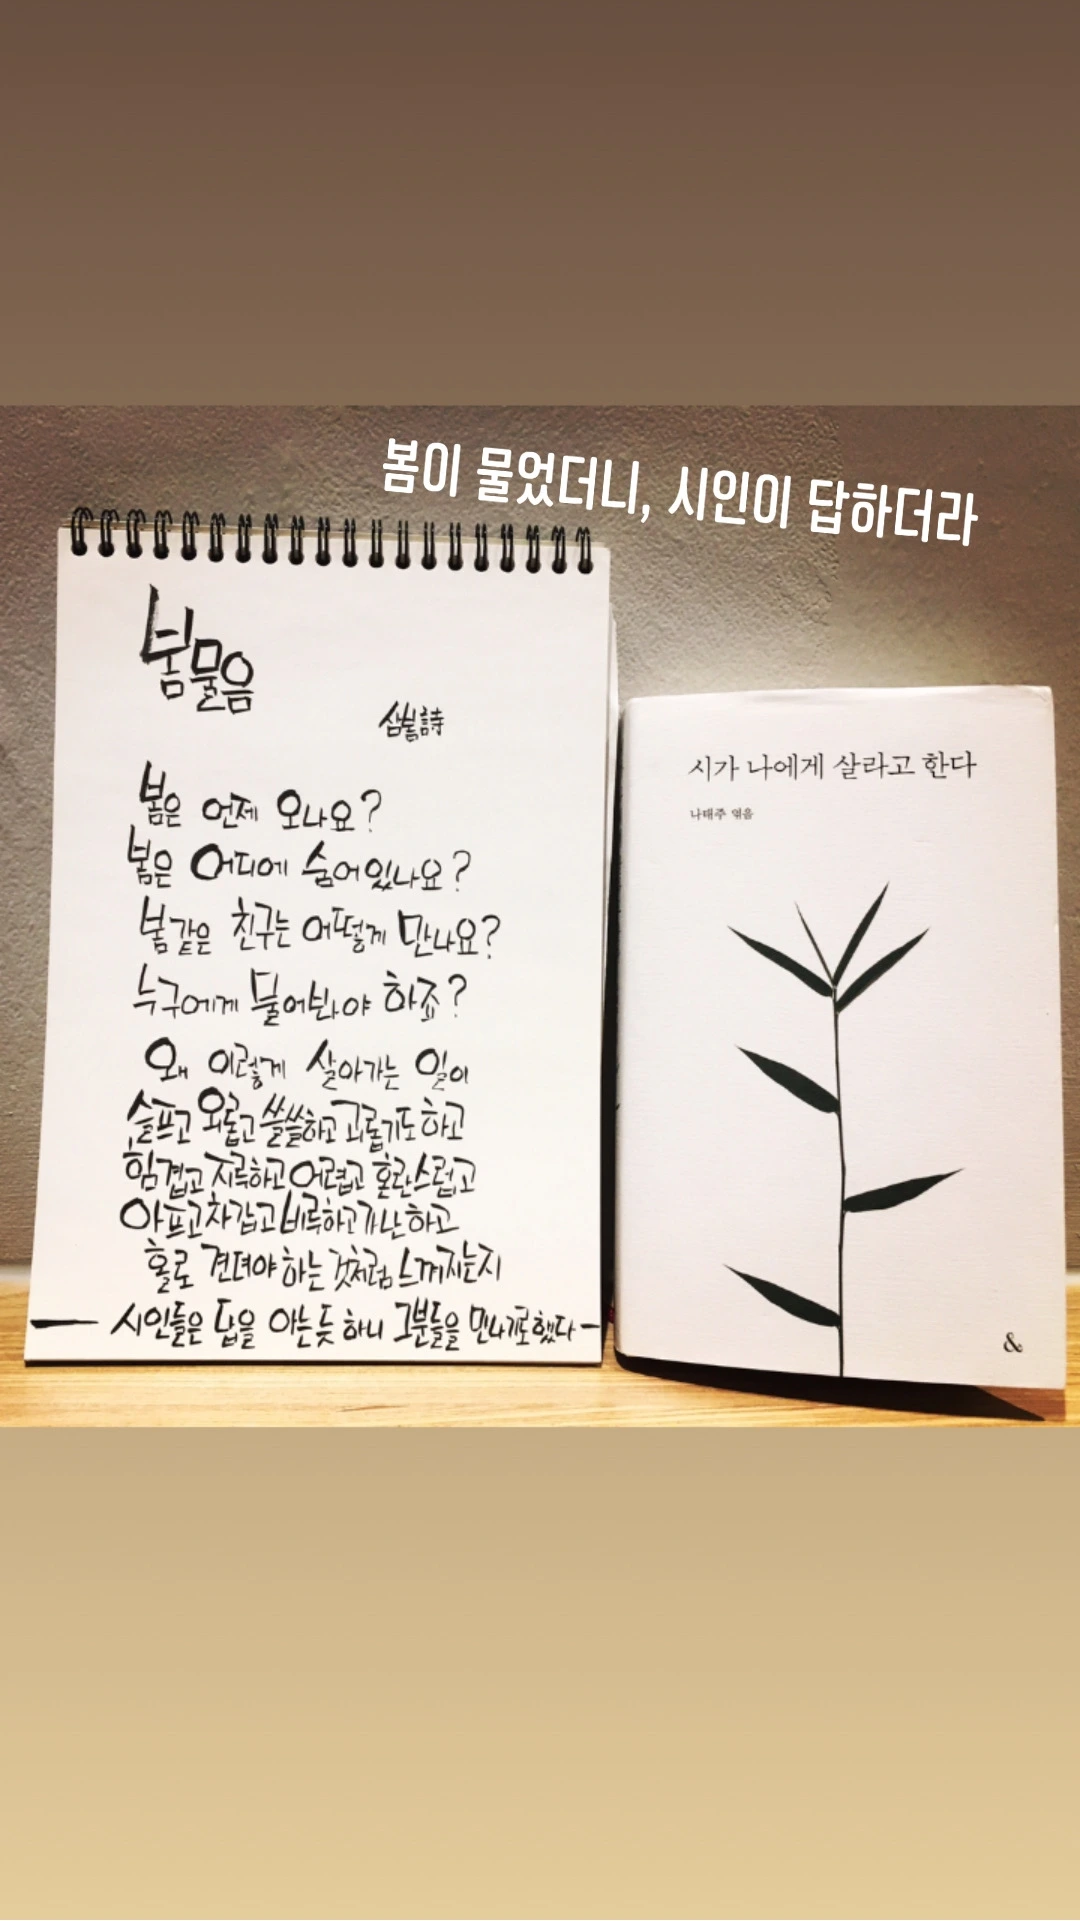 봄이 물었더니, 시인이 답하더라
봄물음
봄은 언제 오나요?
봄은 어디에 숨어있나요?
봄같은 친구는 어떻게 만나요?
누구에게 물어봐야 하죠?
왜 이렇게 살아가는 일이
슬프고 외롭고 쓸쓸하고 괴롭기도 하고
힘겹고 지루하고 어렵고 혼란스럽고
아프고 차갑고 비루하고 가난하고
홀로 견뎌야 하는 것처럼 느껴지는지
시인들은 답을 아는 듯 하니 그분들을 만나기로 했다
시가 나에게 살라고 한다
나태주 엮음
&